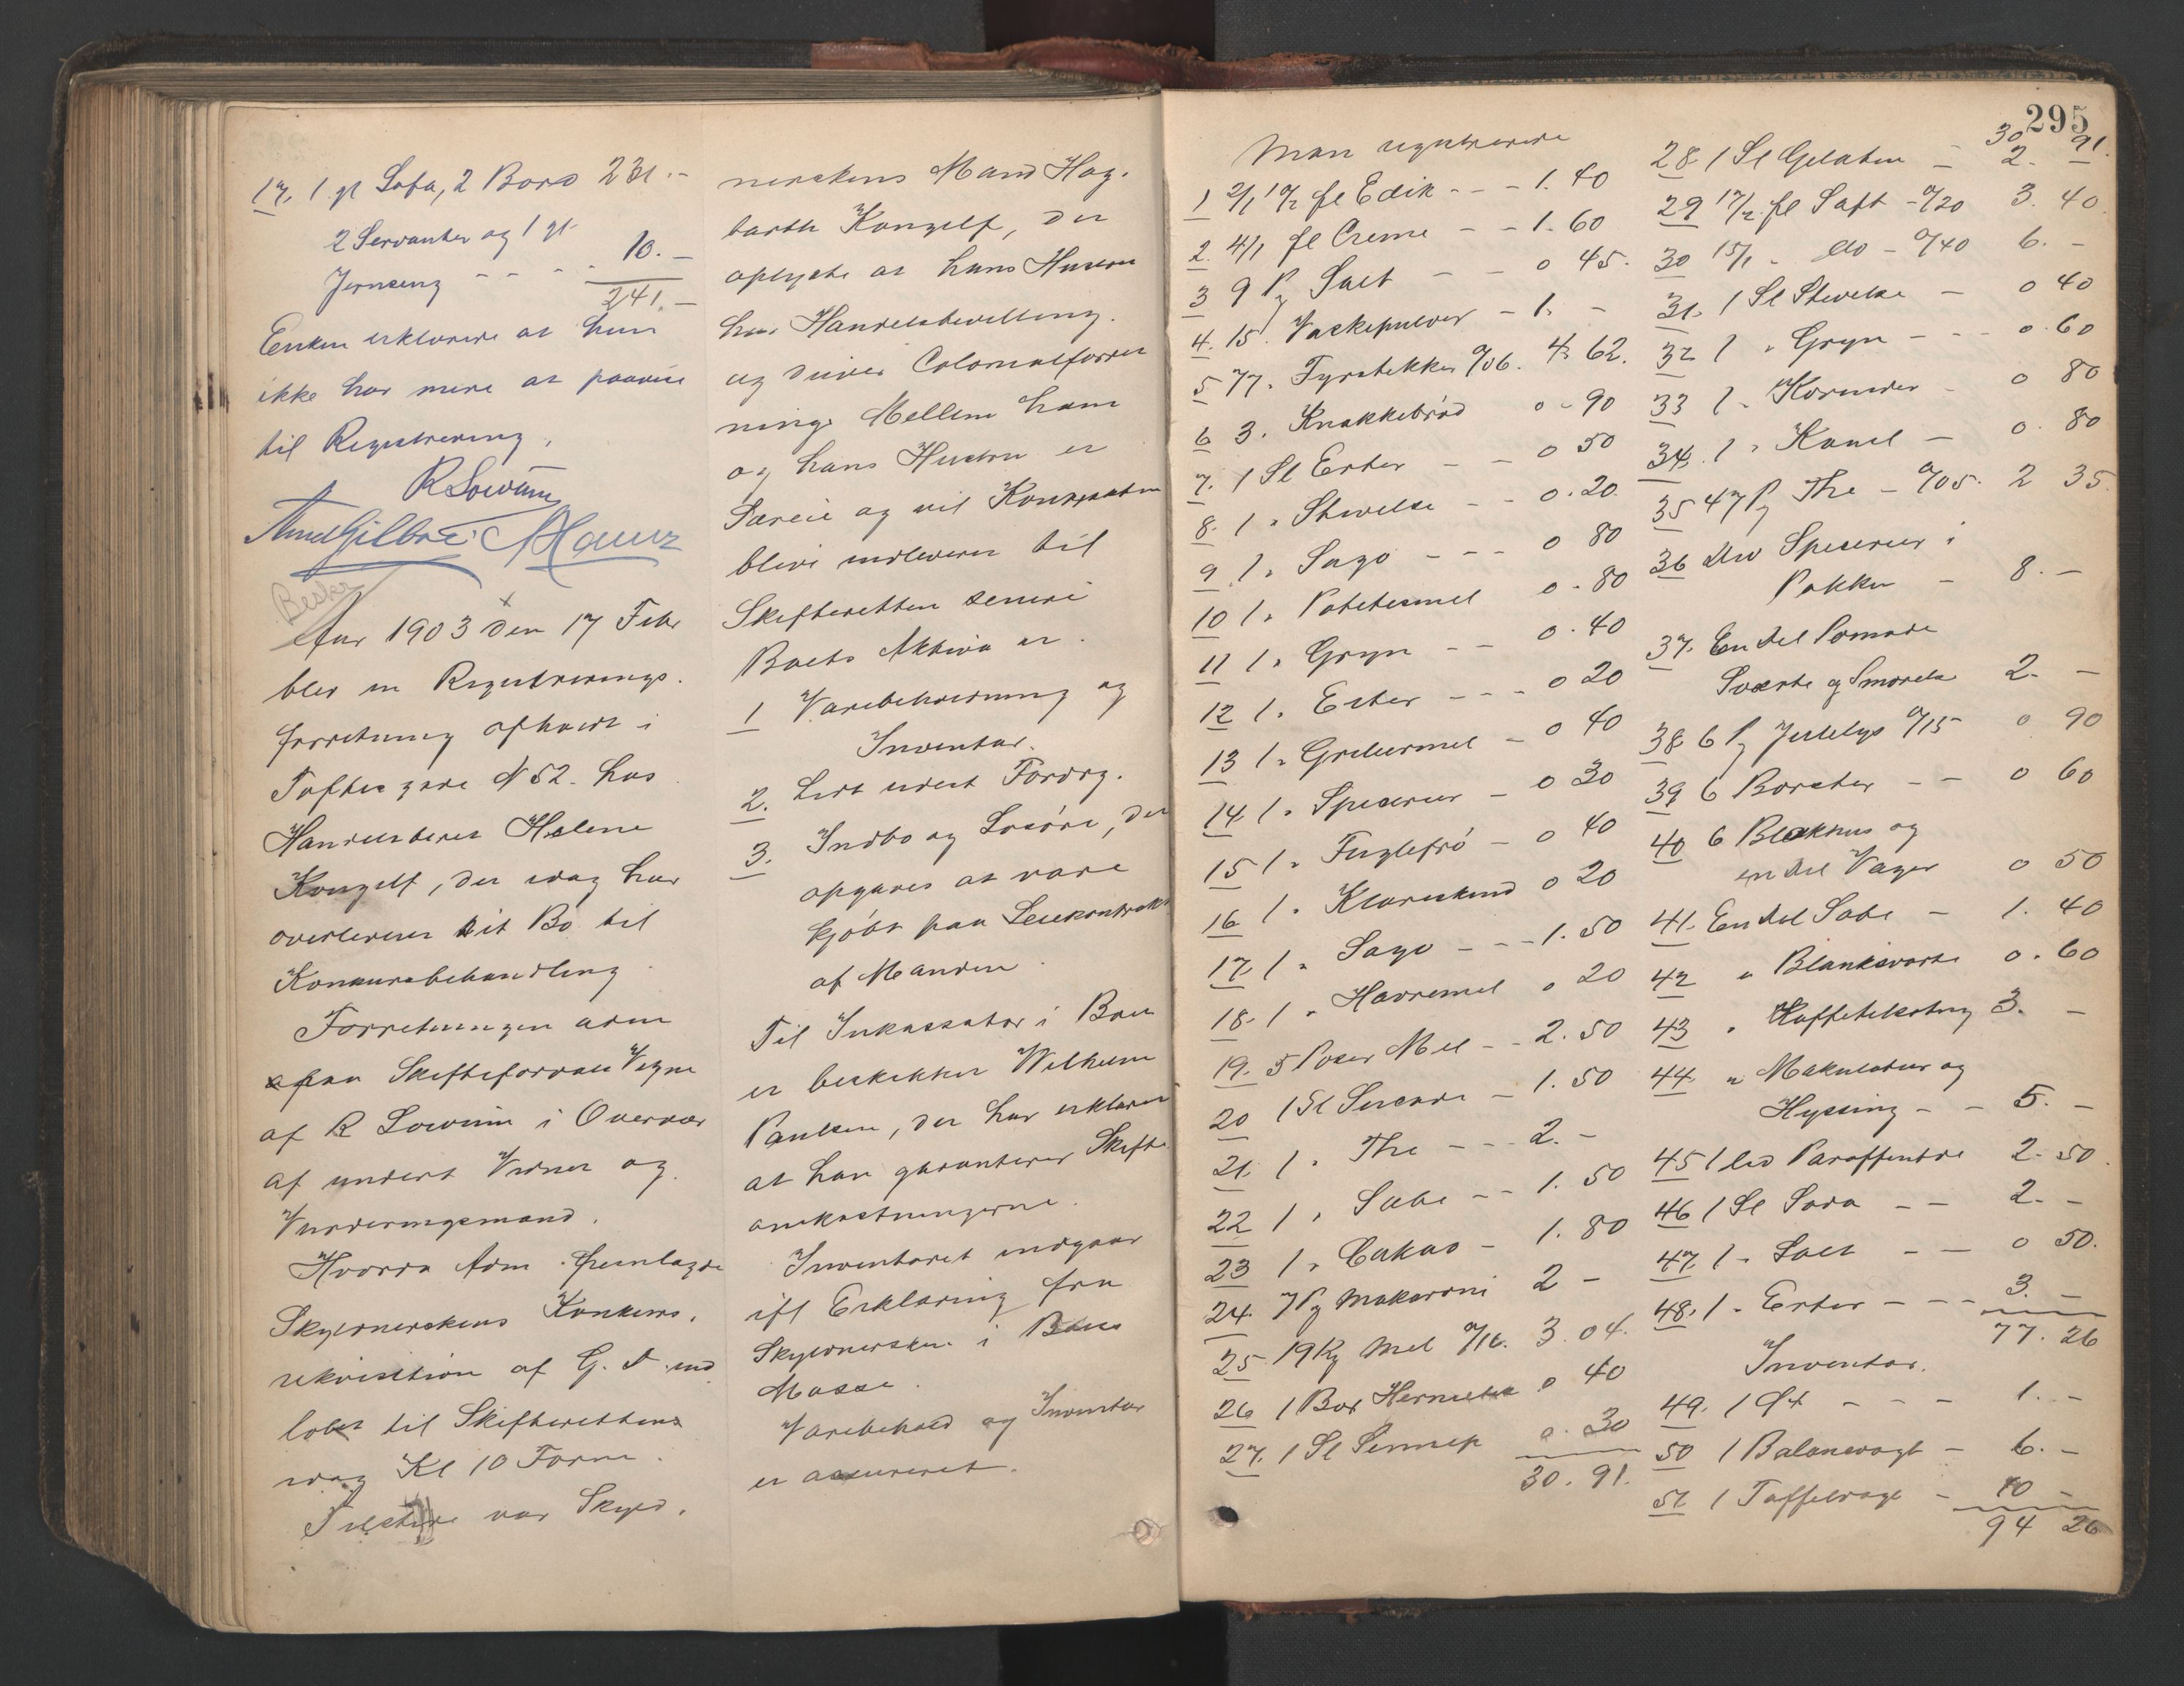 17. 1 gl Sofa, 2 Bord 231.-
2 Servanter og 1 gl
Jernseng - - - - 10.-
241.-
Enken erklærede at hun
ikke har mere at paavise
til Registrering.
R Sowum
Beskr
Aar 1903 den 17 Febr
blev en Registrerings-
forretning afholdt i
Toftes gade N 52. hos
Handlendes Helene
Konzelf, der idag har
overleveret sit Bo til
Konkursbehandling.
Forretningen adm
paa Skifteforvalt Vegne
af R Sowum i Overvær
af undert Vidner og
Vurderingsmænd.
Hvorda Adm. fremlagde
Skyldnerskens Konkurs-
rekvisition af G. D. ind
lobet til Skifteretten
idag Kl 10 Form.
Tilstede var Skyld-
nerskens Mand Hag-
barth Konzelf, der
oplyste at hans Hustru
har Handelsbevilling
og driver Colonialforret
ning. Mellem ham
og hans Hustru er
Særeie og vil Kontrakten
blive indleveret til
Skifteretten senere
Boets Aktiva er.
1 Varebeholdning og
Inventar.
2. Lidt udest Fordrg.
3. Indbo og Løsøre, der
opgives at være
kjøbt paa Leiekontrakt
af Manden.
Til Inkassator i Boet
er beskikket Wilhelm
Paulsen, der har erklæret
at han garanterer Skifte
omkostningerne.
Inventaret indgaar
ifl Erklæring fra
Skyldnersken i Boets
Masse.
Varebehold og Inventar
er assureret.
295
Man registrerede
1 2/1 17/2 fl Edik - - - 1. 40
2. 4/1 fl Creme - - 1. 60
3 9 Pg Salt - - 0 45.
4. 15. Vaskepulver - 1. -
5 77. Fyrstikker a/06. 4. 62.
6 3. Knækkebrød 0 - 90
7. 1 Sl Erter - - 0 50
8. 1 " Stivelse - - 0. 20.
9 1 " Sago - - - 0 80
10 1 " Potetesmel 0 - 80
11 1 " Gryn - - 0. 40
12 1 " Erter - - - 0 20
13 1 " Griesmel - 0 40
14 1 " Speserier - 0 30
15 1 " Fuglefrø - 0 40
16 1 " Klareskind 0 20
17. 1 " Sago - - - 1. 50
18. 1 " Havremel 0 20
19. 5 Poser Mel - - 2. 50
20 1 Sl - 1. 50
21. 1 " The - - - 2. -
22 1 " Sæbe - - 1. 50
23 1 " Cakao - 1. 80
24. 7 Pg Makaroni 2 -
25. 19 Kg Mel a/16. 3. 04.
26 1 Box 0 40
27. 1 Sl Sennep 0. 30
30. 91.
30 91.
28 1 Sl Gelatin - 2. -
29 17/2 fl Saft - a/20 3. 40
30 15/1 - do - a/40 6. -
31. 1 Sl Stivelse - 0 40
32 1 " Gryn - - - 0. 60
33 1 " Korender - 0 80
34. 1 " Kanel - 0. 80
35 47 Pg The - a/05. 2 35
36 div Speserier i
Pakker - 8. -
37. En del Pomade
Sværte og Smørelse 2. -
38 6 Pg Julelys a/15 0 90
39 6 Børster - - 0 60
40 6 Blækhus og
en del Væger 0 50
41. En del Sæbe - 1. 40
42 " Blanksværte 0. 60
43 " Kaffetilsætng 3. -
44. " Makulatur og
Hyssing - - 5. -
45 1 led Paraffinolie 2. 50.
46 1 Sl Soda - - 2. -
47. 1 " Salt - - 0 50.
48. 1 " Erter - - - 3. -
77. 26
Inventar.
49. 1 - - - 1. -
50 1 Balancevægt - 6. -
51 1 Taffelvægt - 10 -
94 26